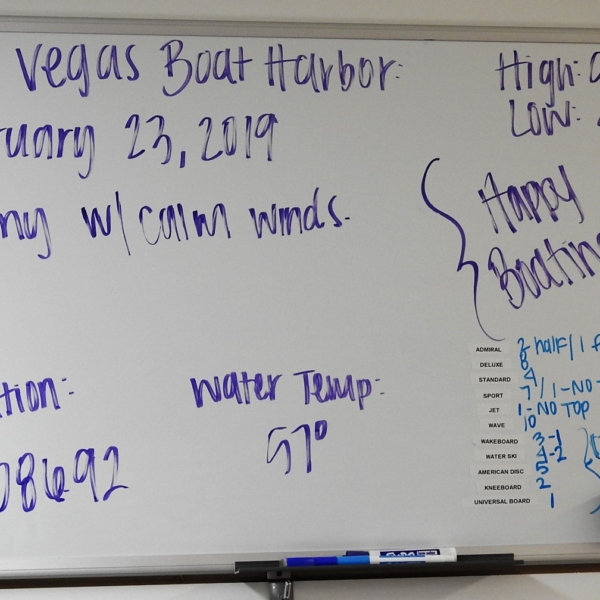 Vegas Boat Harbor:
High:
Low:
uary 23, 2019
ny w/ calm winds.
Happy
Boating
tion:
08692
Water Temp:
57°
ADMIRAL 2 half / 1 f
DELUXE 8
STANDARD 4
SPORT 7 / 1-NO T
JET 1-NO TOP
WAVE 10
WAKEBOARD 3-1
WATER SKI 4-2
AMERICAN DISC 5
KNEEBOARD 2
UNIVERSAL BOARD 1
EXPO